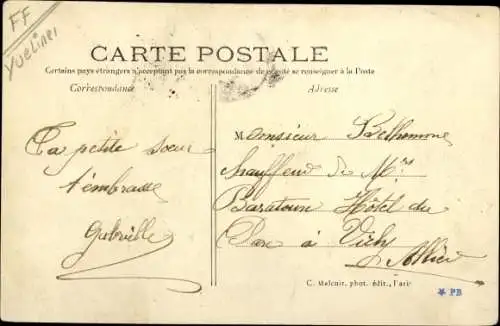 FF
Yvelines
CARTE POSTALE
Certains pays étrangers n'acceptant pas la correspondance de ce côté se renseigner à la Poste
Correspondance
Adresse
Ta petite soeur
t'embrasse
Gabrielle
Monsieur Belhomme
chauffeur de Mr
Hôtel du
Parc à Vichy
Allier
C. Malcuit, phot. édit., Paris
PB